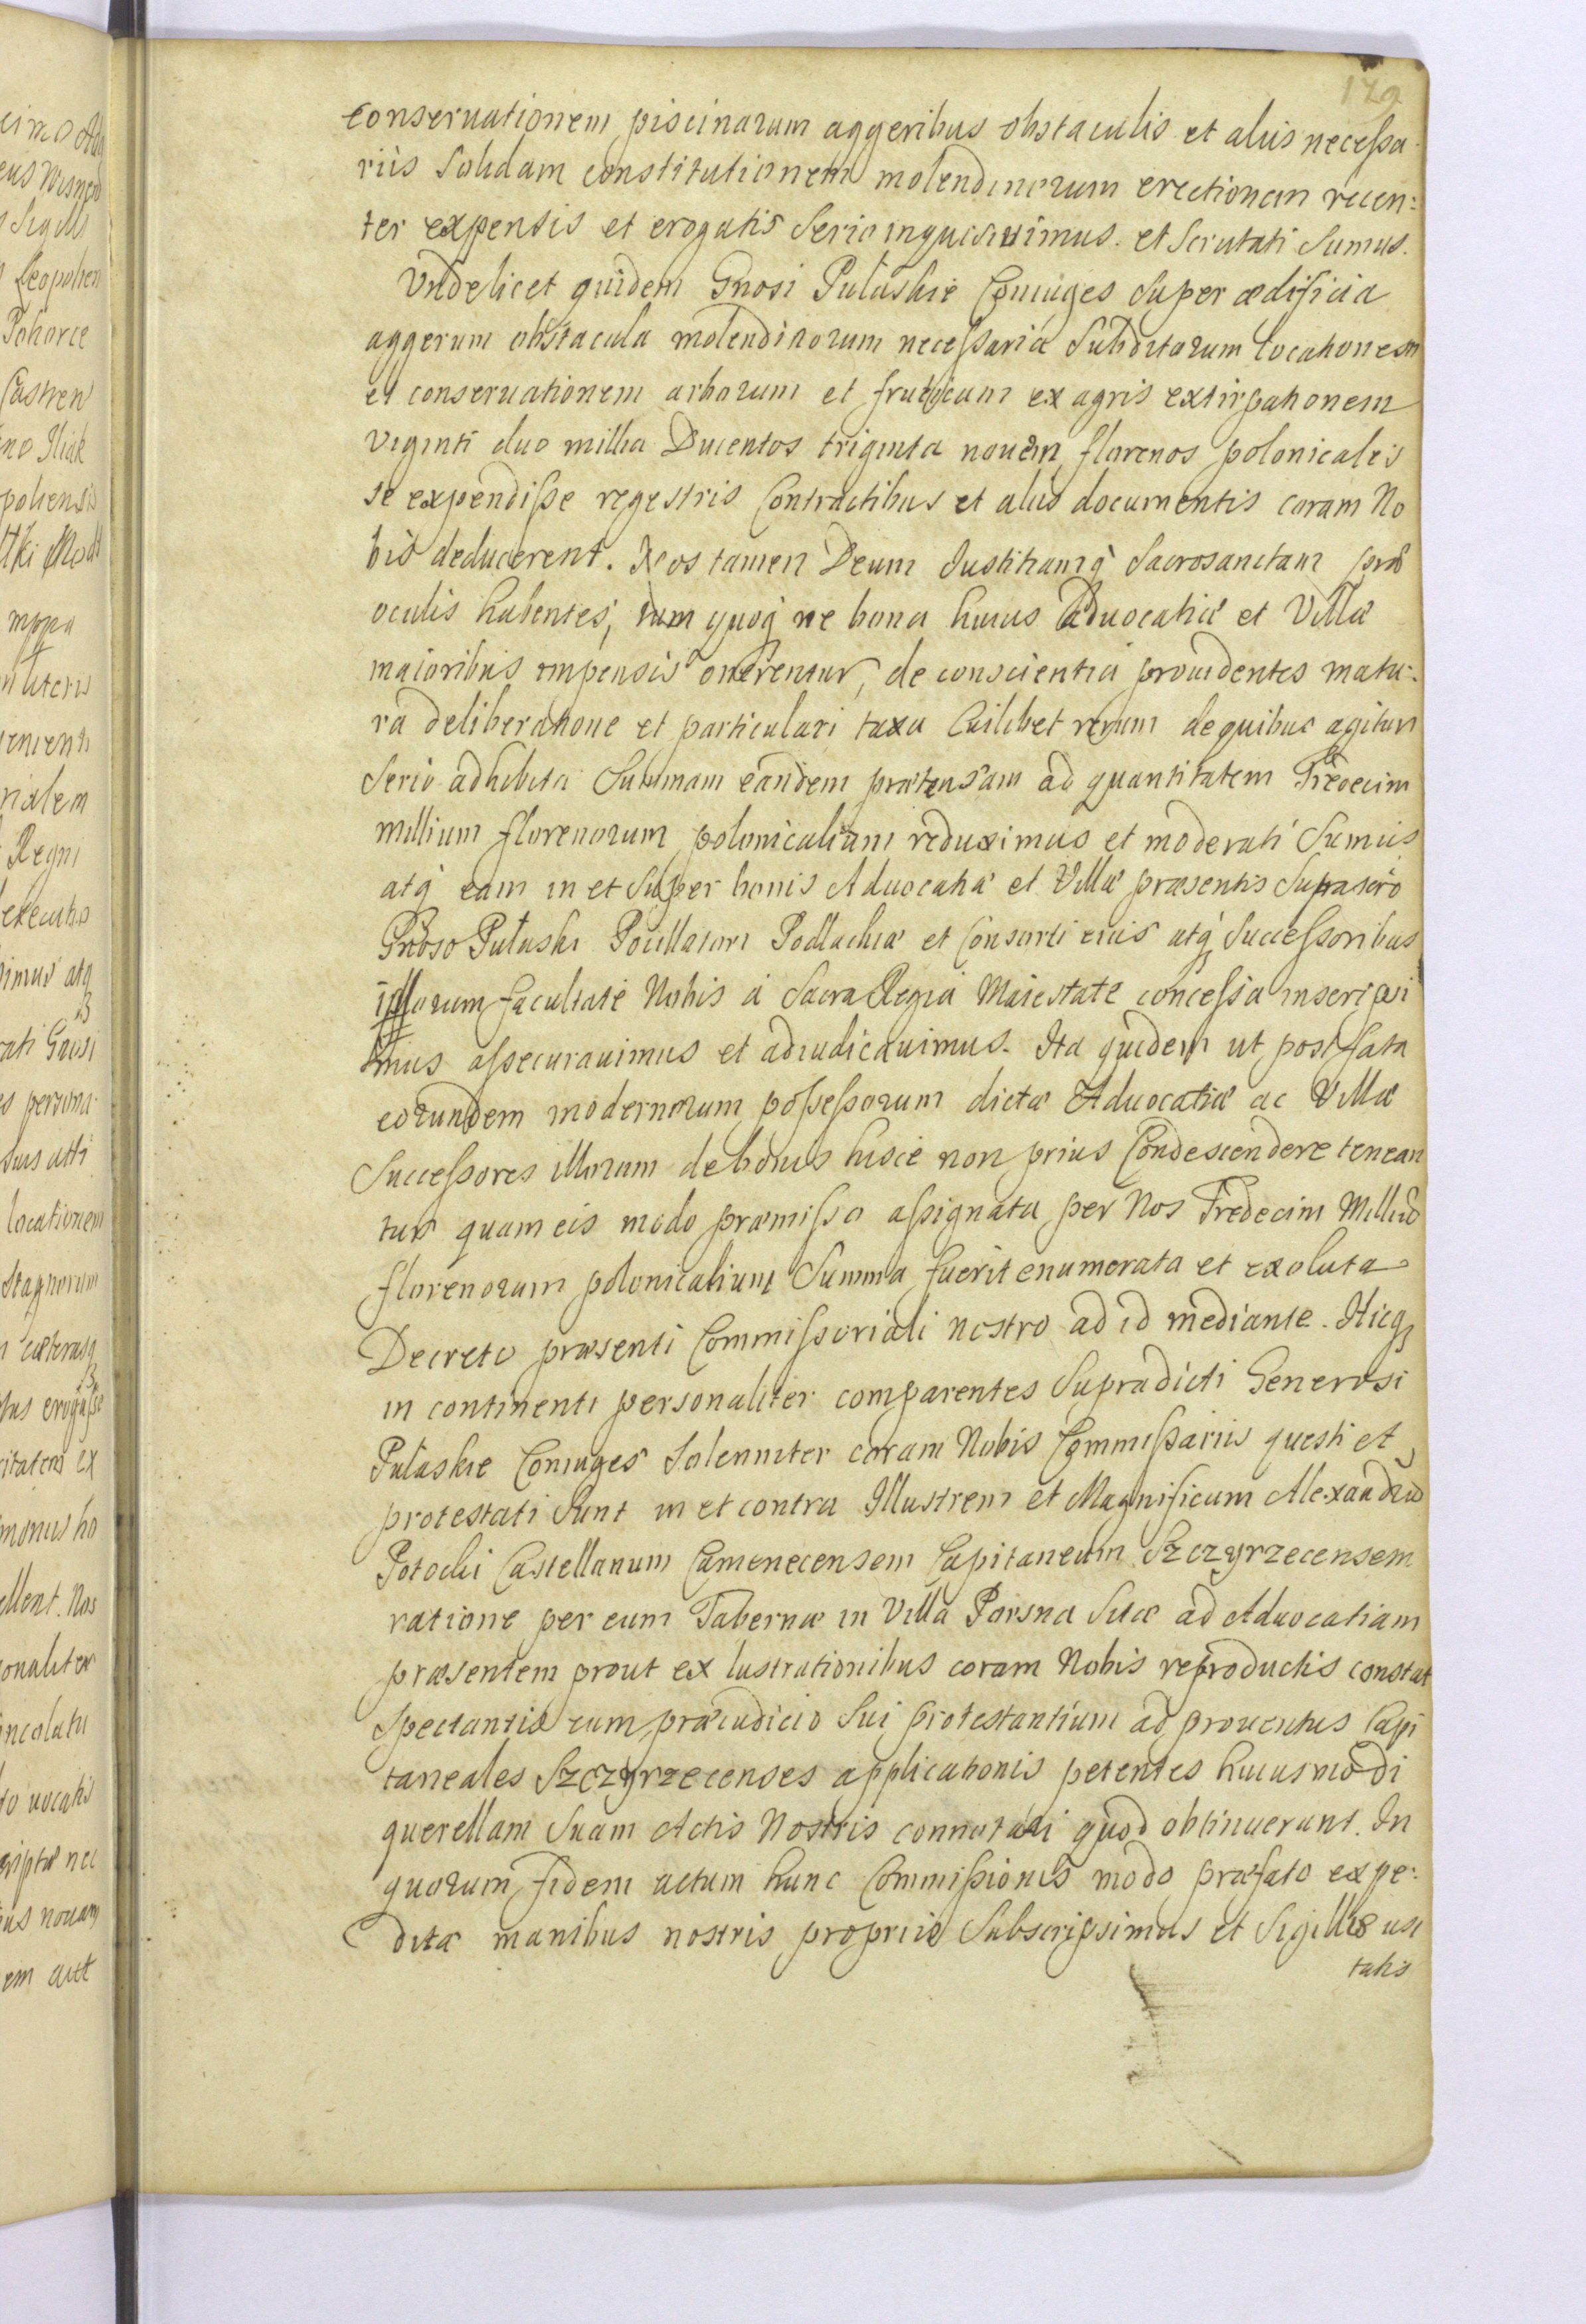 179
conseruationem piscinarum aggeribus obstaculis et aliis necessa-
riis solidam constitutionem molendinorum erectionem recen:
ter expensis et erogatis serio inquisiuimus. et scrutati sumus.
Vnde licet quidem Gnosi Pułaskie Coniuges super ædificia
aggerum obstacula molendinorum necessaria subditorum locationem
et conseruationem arborum et fruticum ex agris extirpationem
viginti duo millia Ducentos triginta nouem florenos polonicales
se expendisse regestris Contractibus et aliis documentis coram No
bis deducerent. Nos tamen Deum Iustitiamq Sacrosanctam præ
oculis habentes, tum quoq ne bona huius Aduocatiæ et Villæ
maioribus impensis onerentur, de conscientia prouidentes matu:
ra deliberatione et particulari taxa cuilibet rerum de quibus agitur
serio adhibita Summam eandem prætensam ad quantitatem Tredecim
millium florenorum polonicalium reduximus et moderati sumus
atq eam in et super bonis Aduocatiæ et Villæ præsentis suprascro
Gnoso Pułaski Pocillatori Podlachiæ et Consorti eius atq Successoribus
illorum facultate Nobis a Sacra Regia Maiestate concessa inscripsi
mus assecurauimus et adiudicauimus. Ita quidem ut post fata
eorundem modernorum possessorum dictæ Aduocatiæ ac Villæ
Successores illorum de bonis hisce non prius Condescendere tenean
tur quam eis modo præmisso assignata per Nos Tredecim Milliū
florenorum polonicalium Summa fuerit enumerata et exoluta
Decreto præsenti Commissoriali nostro ad id mediante. Hicq
in continenti personaliter comparentes Supradicti Generosi
Pułaskie Coniuges solenniter coram Nobis Commissariis questi et
protestati sunt in et contra Illustrem et Magnificum Alexandrū
Potocki Castellanum Camenecensem Capitaneum Szczyrzecensem
ratione per eum Tabernæ in Villa Porsna sitæ ad Aduocatiam
præsentem prout ex lustrationibus coram Nobis reproductis constat
spectantis cum præiudicio sui protestantium ad prouentus Capi
taneales Szczyrzecenses applicationis petentes huiusmodi
querellam suam Actis Nostris connotari quod obtinuerunt. In
quorum fidem actum hunc Commissionis modo præfato expe:
ditæ manibus nostris propriis subscripsimus et Sigillis usi
tatis